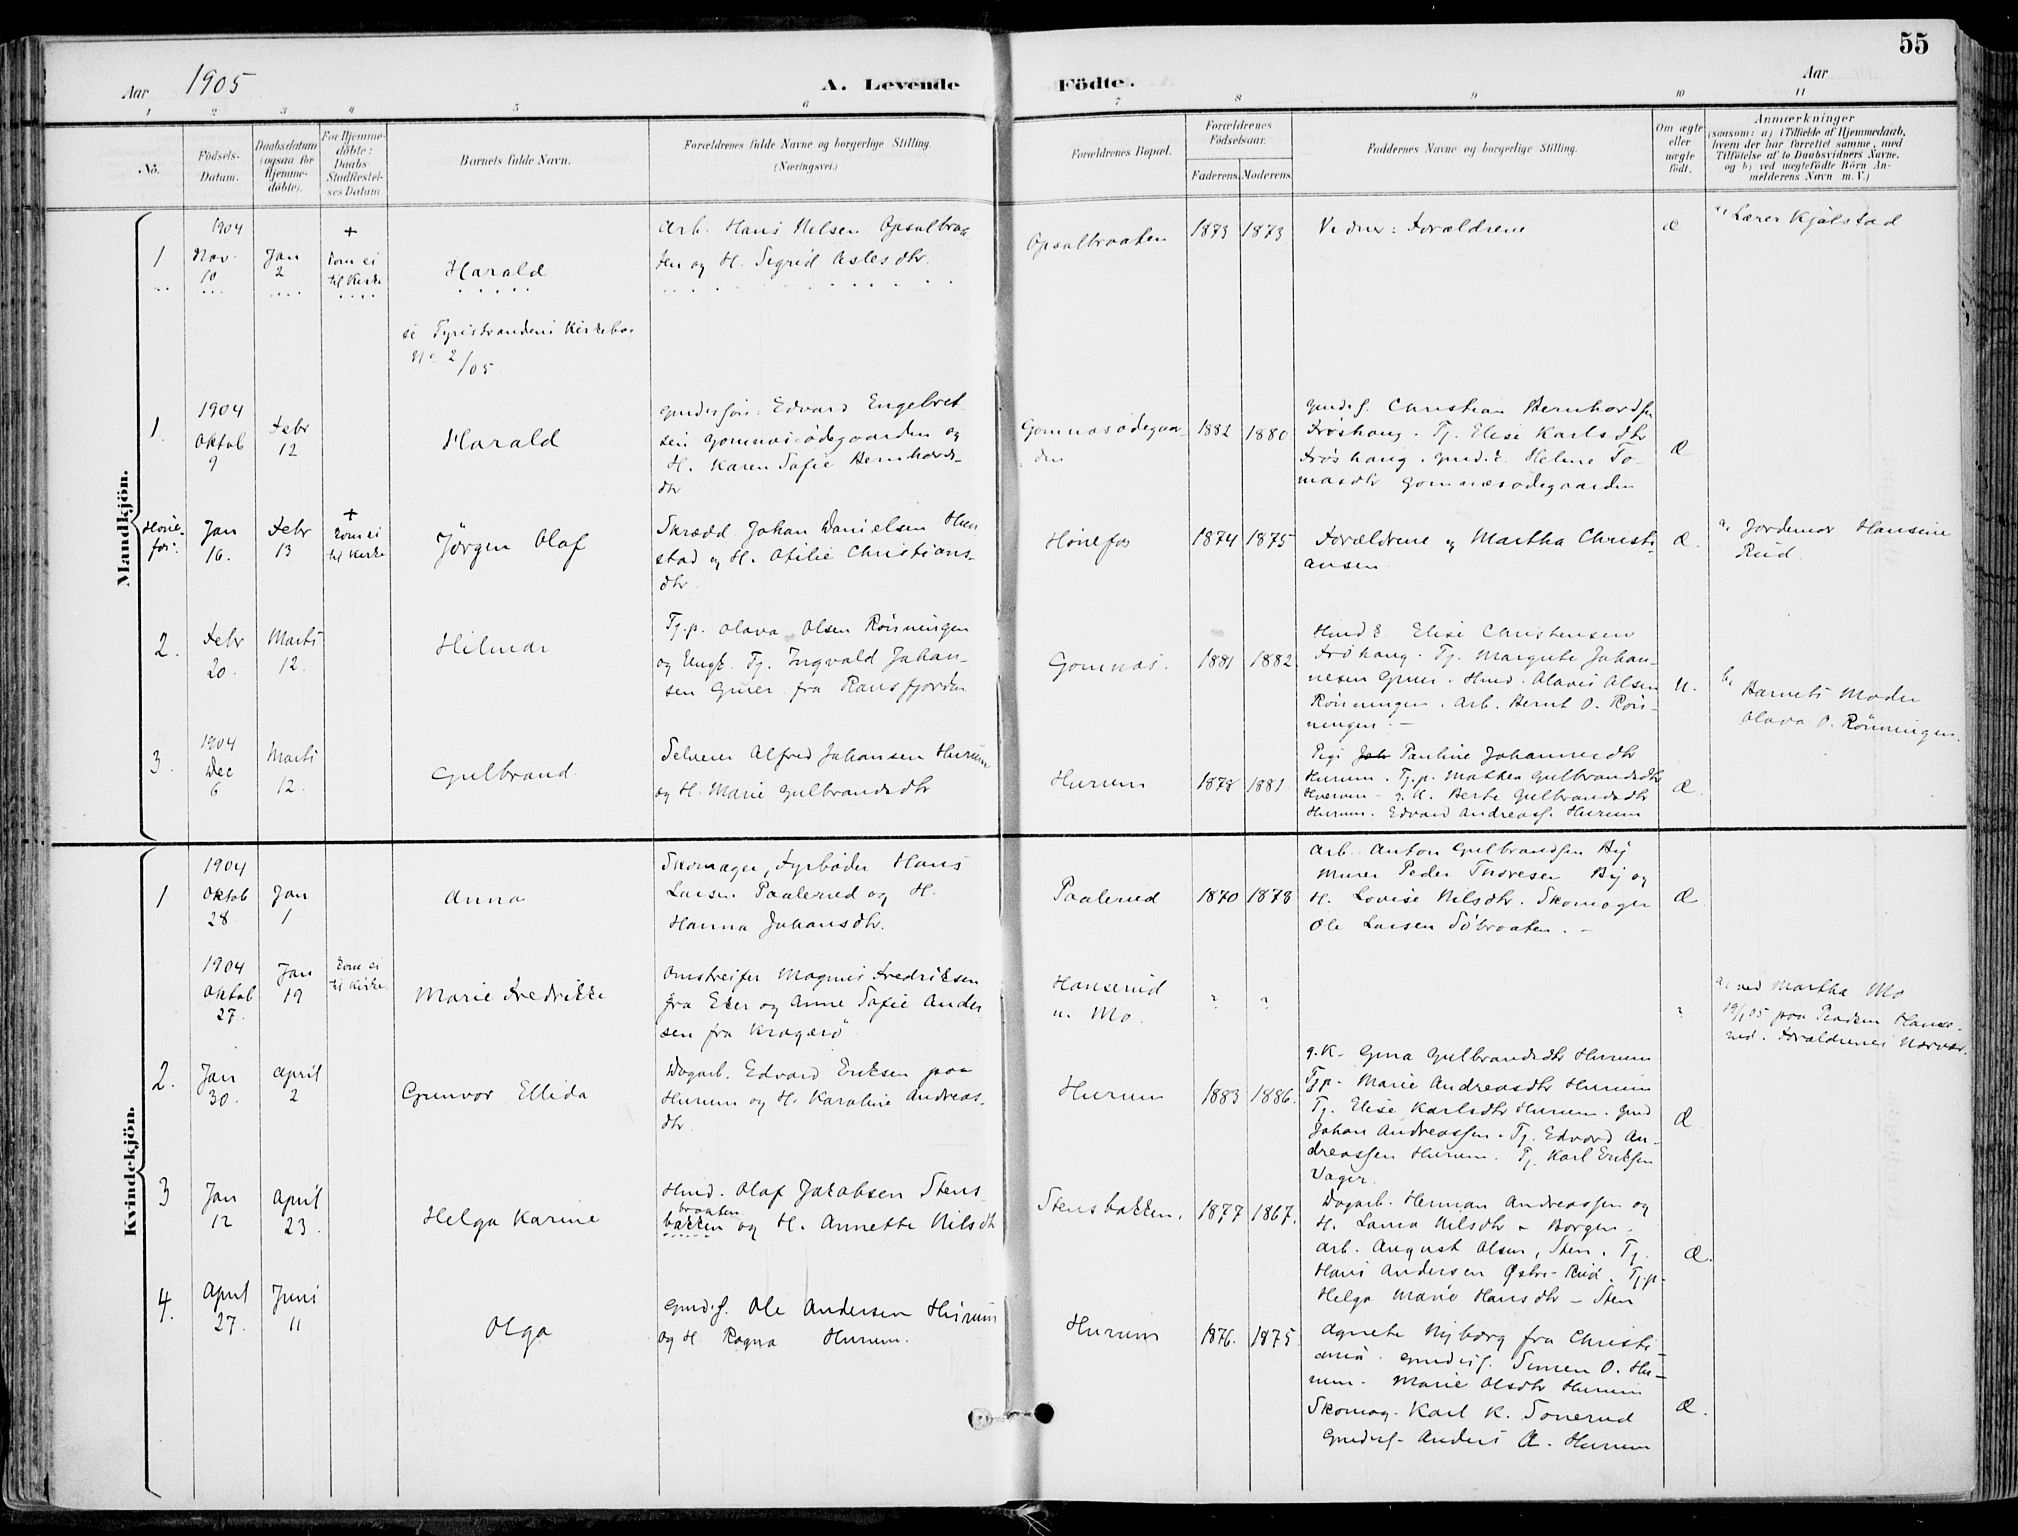 55
Aar 1905
A. Levende Födte.
Aar
1 2 3 4 5 6 7 8 9 10 11
No.
Födsels-
Datum.
Daabsdatum
(ogsaa for
Hjemme-
døbte).
For Hjemme-
döbte:
Daabs-
Stadfæstel-
ses Datum
Barnets fulde Navn.
Forældrenes fulde Navne og borgerlige Stilling.
(Næringsvei.)
Forældrenes Bopæl.
Forældrenes
Födselsaar.
Faderens. Moderens.
Faddernes Navne og borgerlige Stilling.
Om ægte
eller
uægte
födt.
Anmærkninger
(saasom: a) i Tilfælde af Hjemmedaab,
hvem der har forrettet samme, med
Tilföielse af to Daabsvidners Navne.
og b) ved uægtefödte Börn An-
melderens Navn m. V.)
Mandkjön.
1
1904
Nov.
10
Jan
2
+
Kom ei
til Kirke
Harald
se Tyristrandens Kirkebo
No 2/05
Arb. Hans Nilsen Opsalbraa
ten og H. Sigrid Aslesdtr.
Opsalbraaten
1873 1873
Vidner: Forældrene
Æ
a, Lærer Kjølstad
1.
1904
Oktob
9
Febr
12
Harald
Edvard Engebret
sen Gomnæsödegaarden og
H. Karen Sofie Bernhards-
dtr
Gomnæsödegaar
den
1882 1880
Gmdsf. Christian Bernhardsn
Fröshaug. Tj. Elise Karlsdtr
Fröshaug. Helene To-
masdtr Gomnæsödegaarden
Æ
Höne-
fos.
Jan
16.
Febr
13
+
Kom ei
til Kirke
Jørgen Olaf
Skrædd. Johan Danielsen Hun
stad og H. Otilie Christians-
dtr.
Hönefos
1874 1875
Forældrene og Martha Christi
ansen
Æ.
a, Jordemor Hansine
Rud.
2.
Febr
20.
Marts
12.
Hilmar
Tj.p. Olava Olsen Rönningen
og Ungk. Tj. Ingvald Johan-
sen Gruer fra Ransfjorden
Gomnæs.
1881 1882.
Elise Christensen
Fröhaug. Tj. Margrete Johan-
nesen Gruer. Hmd. Olavis Olsen
Rönningen. Arb. Bernt O. Rön-
ningen. –
U.
b, Barnets Moder
Olava O. Rönningen.
3.
1904
Dec
6
Marts
12.
Gulbrand.
Selveier Alfred Johansen Hurum
og H. Marie Gulbrandsdtr
Hurum
1878 1881.
Pige Pauline Johannesdtr
Hurum. Tj.p. Mathea Gulbrandsdtr
Hurum. g. K. Berte Gulbrandsdtr
Hurum. Edvard Andreass. Hurum
Æ.
Kvindekjön.
1
1904
Oktob
28
Jan
1
Anna
Skomager, Fyrböder Hans
Larsen Paalerud og H.
Hanna Johansdtr.
Paalerud
1870 1878
Arb. Anton Gulbrandsen By
Murer Peder Thoresen By og
H. Lovise Nilsdtr. Skomager
Ole Larsen Söbraaten. –
Æ.
1904
Oktob
27.
Jan
19
Kom ei
til Kirke.
Marie Fredrikke
Omstreifer Magnus Fredriksen
fra Eker og Anne Sofie Ander
sen fra Kragerö
Hanserud
u. Mo.
? ?
?
a, ved Martha Mo
19/1 05 paa Pladsen Hanse-
rud. Forældrenes Nærvær.
2.
Jan
30.
April
2
Gunvor Ellida
Dagarb. Edvard Eriksen paa
Hurum og H. Karoline Andreas-
dtr.
Hurum
1883 1886.
g. K. Gina Gulbrandsdtr Hurum
Tjp. Marie Andreasdtr Hurum
Tj. Elise Karlsdtr Hurum. Gmd
Johan Andreassen. Tj. Edvard An-
dreassen Hurum. Tj. Karl Eriksen
Vager.
Æ
3
Jan
12
April
23.
Helga Karine
Hmd. Olaf Jakobsen Stens
braaten
bakken og H. Annette Nilsdtr
Stensbakken.
1877 1867.
Dagarb. Herman Andreassen og
H. Laura Nilsdtr – Borgen.
Arb. August Olsen, Sten. Tj.
Hans Andersen Østre-Rud. Tj.p.
Helga Marie Hansdtr – Sten
Æ.
4.
April
27.
Juni
11
Olga
Gmdsf. Ole Andersen Hurum
og H. Ragna Hurum.
Hurum
1876. 1875
Agnete Nyborg fra Christi-
ania. Gmdsf. Simen O. Hu-
rum. Marie Olsdtr Hurum
Skomag. Karl K. Sonerud
Gmdsf. Anders A. Hurum
Æ.